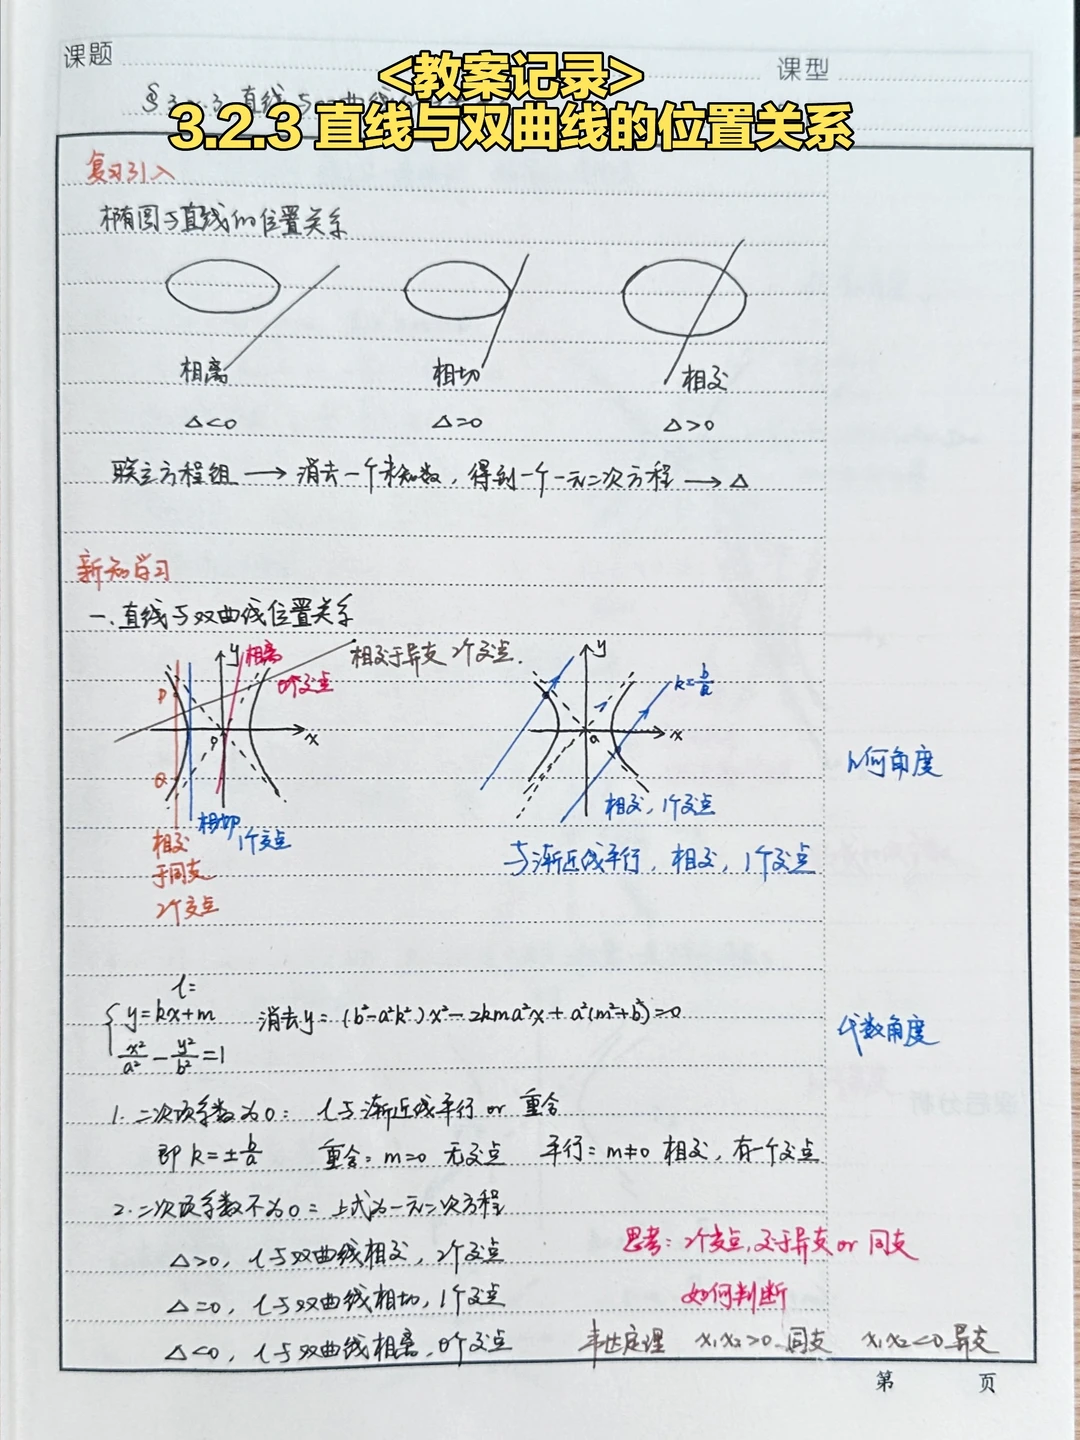 课题
课型
<教案记录>
3.2.3 直线与双曲线的位置关系
复习引入
椭圆与直线的位置关系
相离 相切 相交
△<0 △=0 △>0
联立方程组 → 消去一个未知数，得到一个一元二次方程 → △
新知学习
一、直线与双曲线位置关系
y
相离
0个交点
相交于异支 2个交点.
P
O
x
Q
相切
1个交点
相交
于同支
2个交点
y
k=b/a
x
相交，1个交点
与渐近线平行，相交，1个交点
几何角度
l:
y=kx+m
x²/a² - y²/b² =1
消去y: (b²-a²k²)x²-2kma²x+a²(m²+b²)=0
代数角度
1. 二次项系数为0: l与渐近线平行 or 重合
即 k=±b/a 重合: m=0 无交点 平行: m≠0 相交，有一个交点
2. 二次项系数不为0: 上式为一元二次方程
△>0, l与双曲线相交，2个交点
△=0, l与双曲线相切，1个交点
△<0, l与双曲线相离，0个交点
思考: 2个交点，交于异支 or 同支
如何判断
韦达定理 x₁x₂>0 同支 x₁x₂<0 异支
第 页